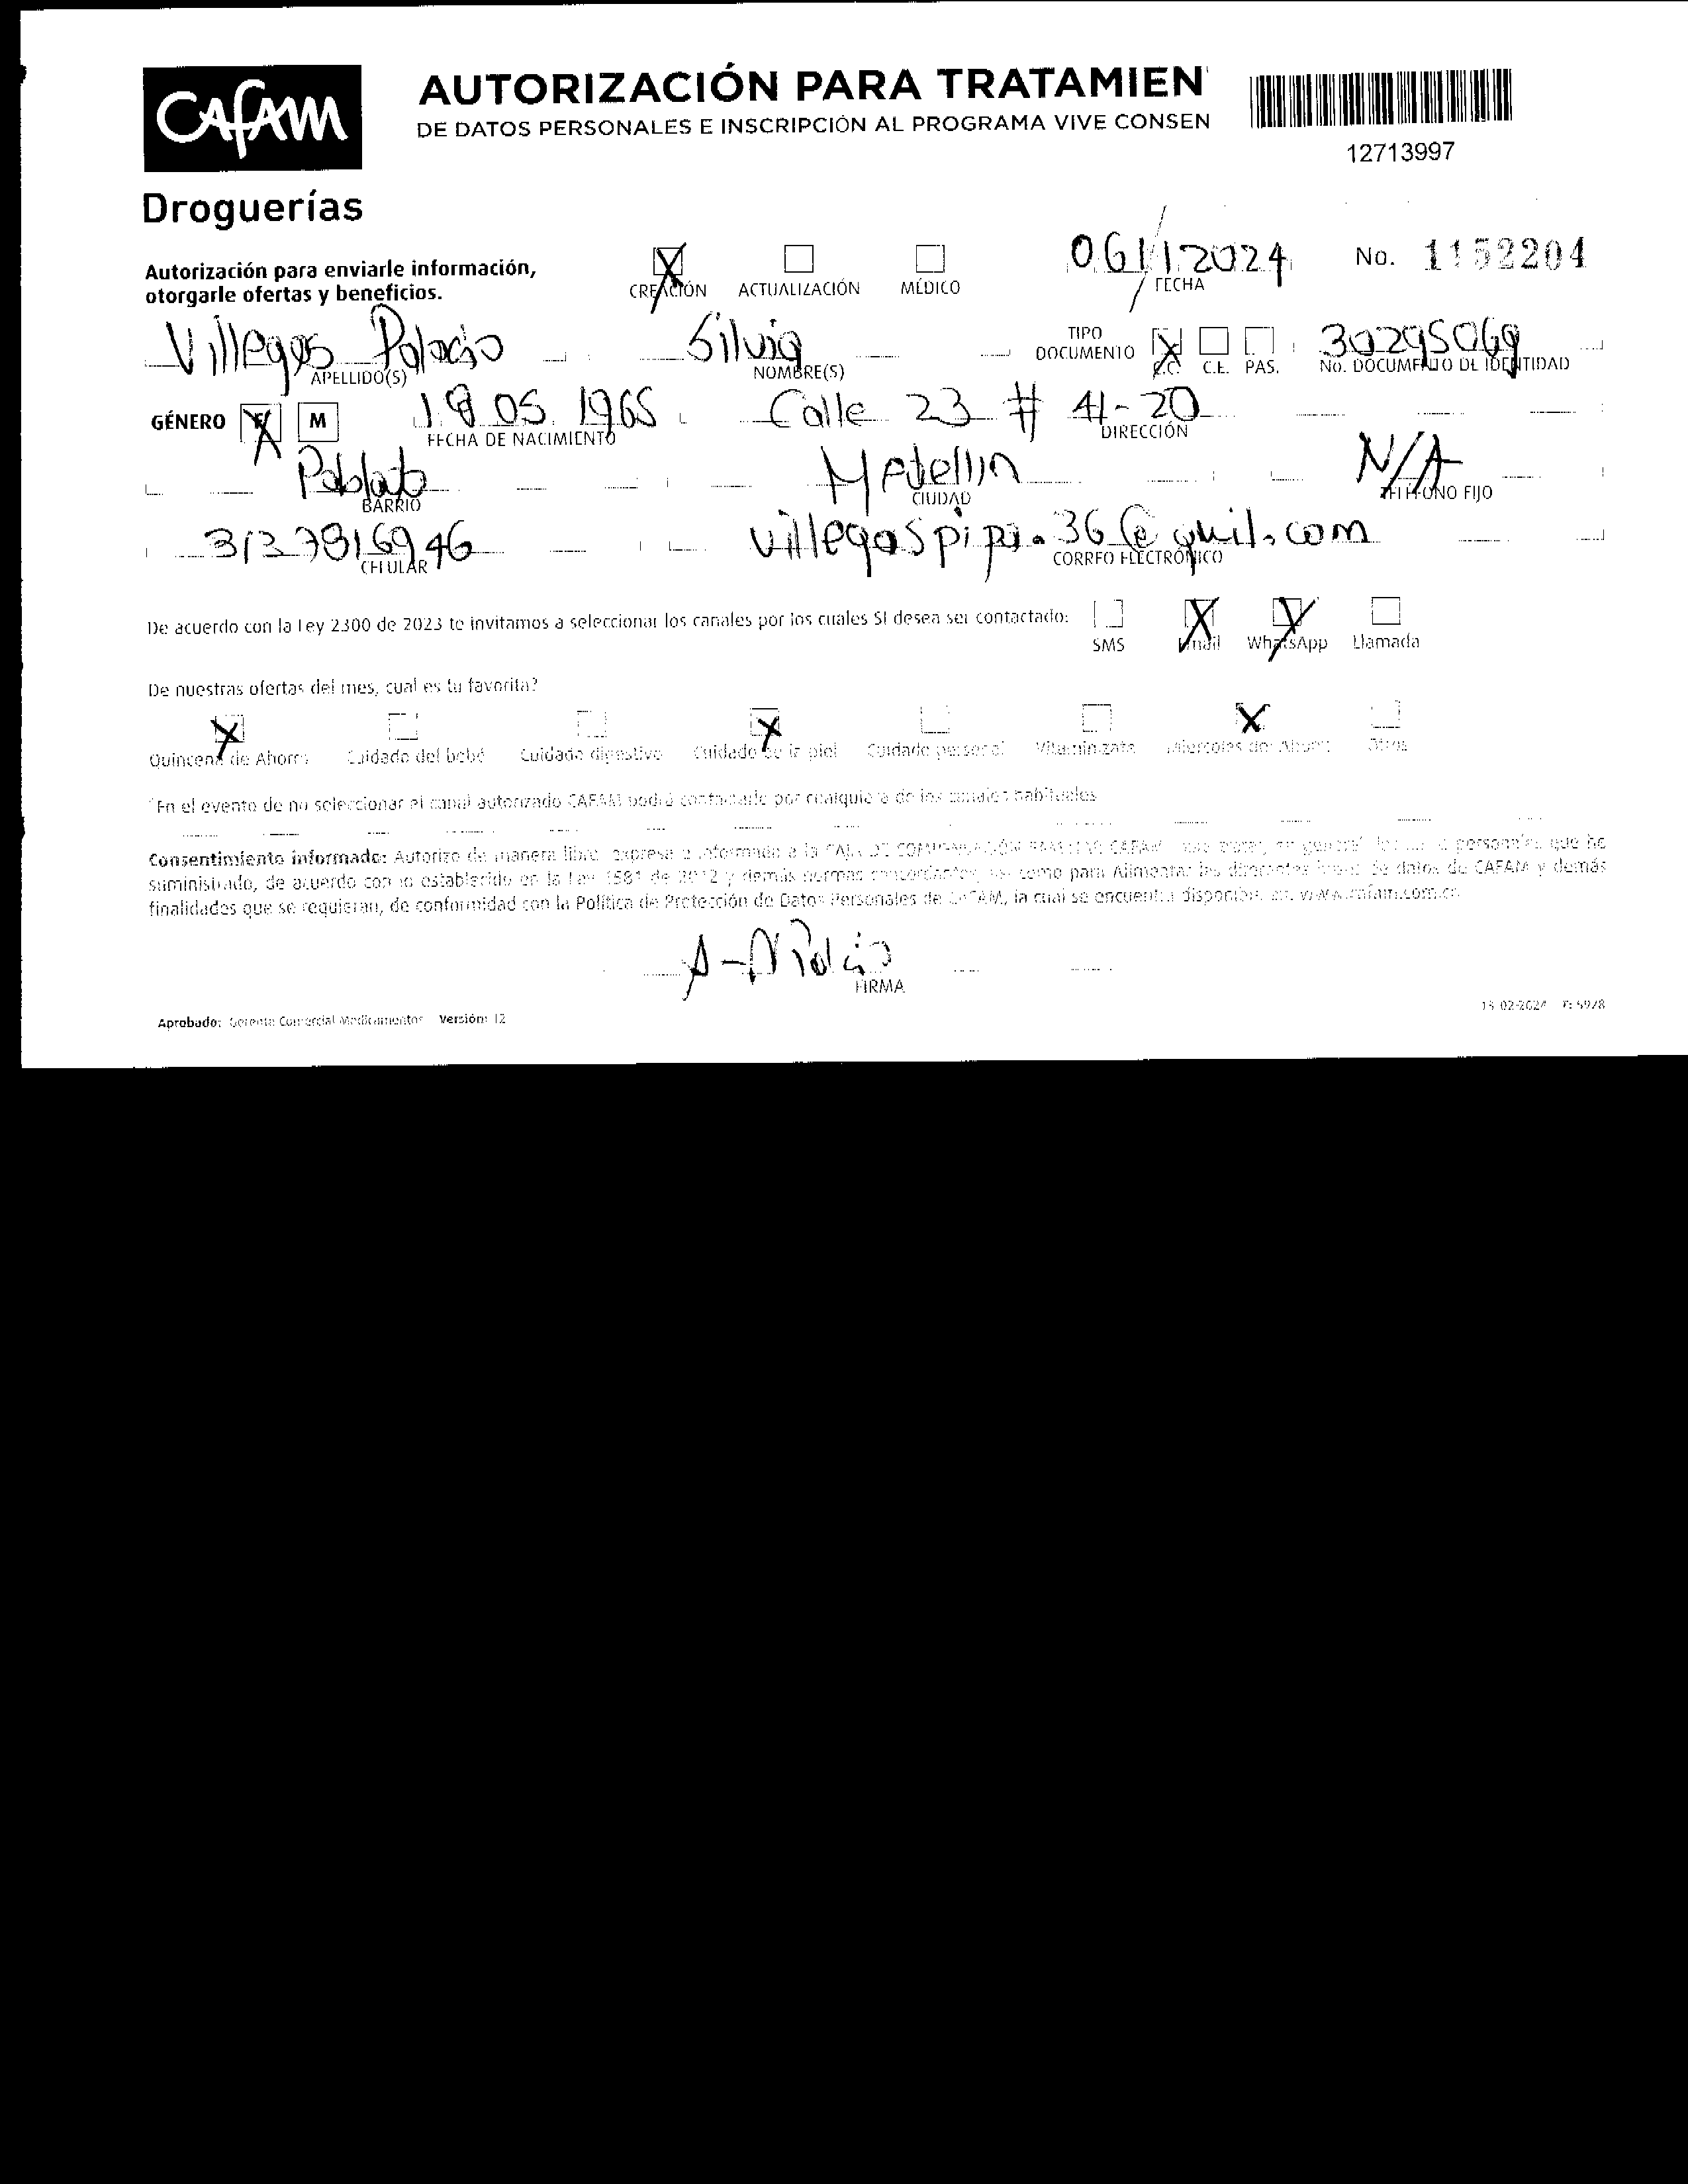 CAFAM
Droguerías
AUTORIZACIÓN PARA TRATAMIEN
DE DATOS PERSONALES E INSCRIPCIÓN AL PROGRAMA VIVE CONSEN
12713997
Autorización para enviarle información,
otorgarle ofertas y beneficios.
X CREACIÓN ACTUALIZACIÓN MÉDICO
06/11/2024 No. 1152204
FECHA
Villegas Palacio Silvia TIPO DOCUMENTO X C.C. C.E. PAS. 30295069
APELLIDO(S) NOMBRE(S) No. DOCUMENTO DE IDENTIDAD
GÉNERO F X M 18 05 1965 Calle 23 # 41-20
FECHA DE NACIMIENTO DIRECCIÓN
Poblado Medellin N/A
BARRIO CIUDAD TELÉFONO FIJO
3137816946 villegaspipa.36@gmil.com
CELULAR CORREO ELECTRÓNICO
De acuerdo con la Ley 2300 de 2023 te invitamos a seleccionar los canales por los cuales SI desea ser contactado: SMS X Email X WhatsApp Llamada
De nuestras ofertas del mes, cual es tu favorita?
X X X
Quincena de Ahorro Cuidado del bebé Cuidado digestivo Cuidado de la piel Cuidado personal Vitaminízate Miercoles del Ahorro Otros
*En el evento de no seleccionar el canal autorizado CAFAM podrá contactarlo por cualquiera de los canales habituales
Consentimiento informado: Autorizo de manera libre, expresa e informada a la CAJA DE COMPENSACIÓN FAMILIAR CAFAM para tratar, en general personales que he
suministrado, de acuerdo con lo establecido en la Ley 1581 de 2012 y demás normas concordantes, así como para Alimentar las diferentes bases de datos de CAFAM y demás
finalidades que se requieran, de conformidad con la Política de Protección de Datos Personales de CAFAM, la cual se encuentra disponible en: www.cafam.com.co
FIRMA
Aprobado: Gerente Comercial Medicamentos Versión: 12